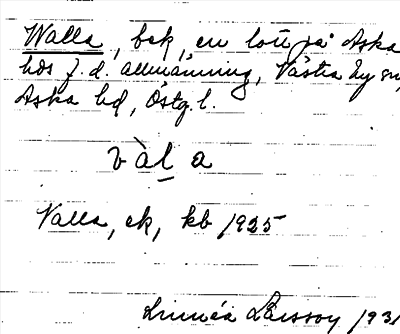 Walla, bsk, en lott på Aska
hds f.d. allmänning, Västra Ny sn,
Aska hd, Östg. l.
vàl a
Valla, ek, kb 1925
Linnéa Larsson 1931